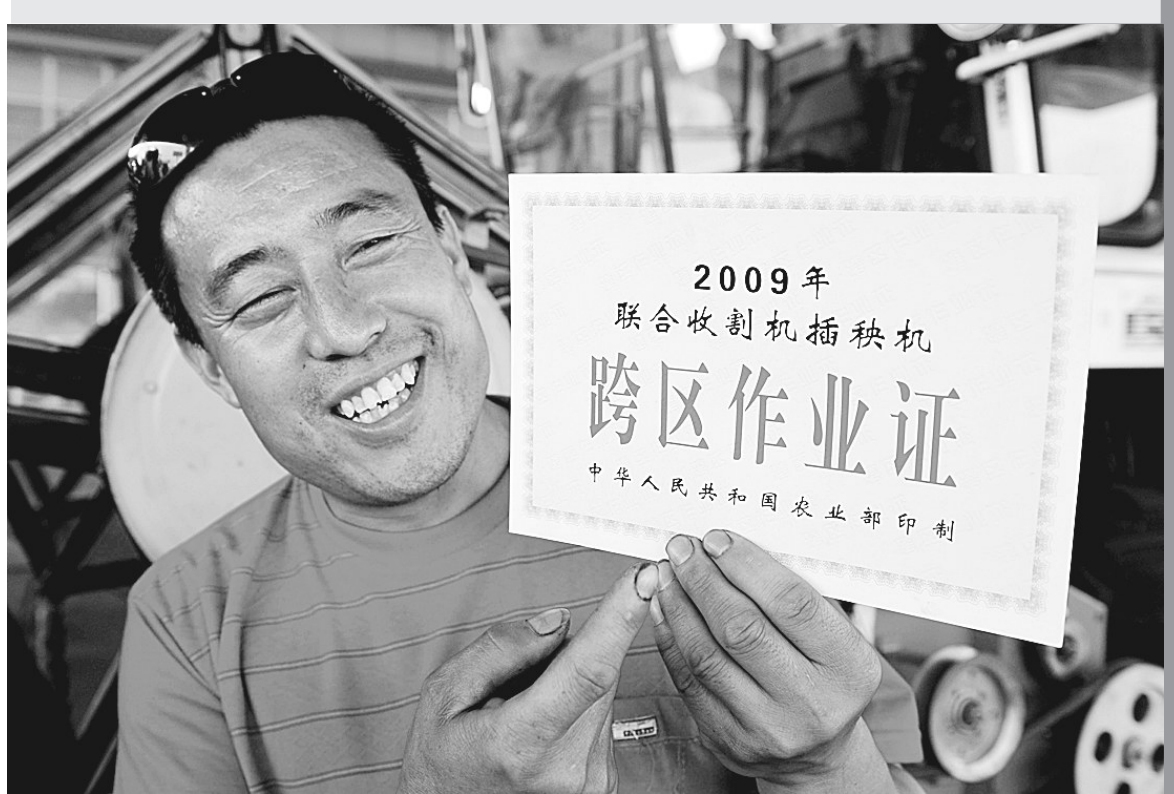 2009年
联合收割机插秧机
跨区作业证
中华人民共和国农业部印制